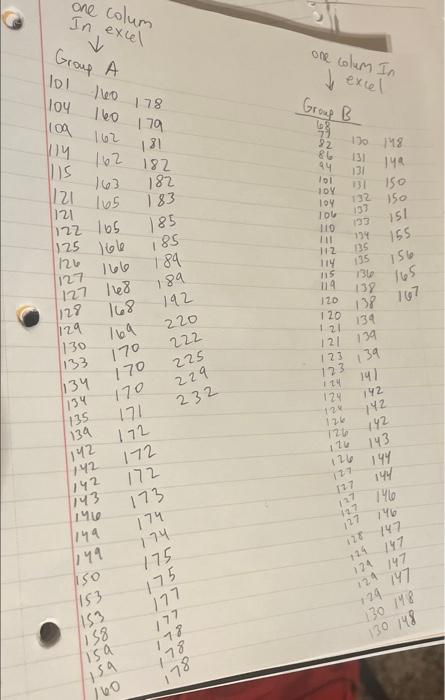 one colum
In excel
Group A
101
104
109
114
115
121
121
122
125
126
127
127
128
129
130
133
134
134
135
139
142
142
142
143
146
149
149
150
153
153
158
159
159
160
160
160
162
162
163
165
165
166
166
168
168
169
170
170
170
171
172
172
172
173
174
174
175
175
177
177
178
178
178
178
179
181
182
182
183
185
185
189
189
192
220
222
225
229
232
one colum In
excel
Group B
68
77
82
86
94
101
104
104
106
110
111
112
114
115
119
120
120
121
121
123
123
124
124
124
126
126
126
126
127
127
127
127
127
128
129
129
129
129
130
130
130
131
131
131
132
133
133
134
135
135
136
138
138
139
139
139
141
142
142
142
143
144
144
146
146
147
147
147
147
148
148
148
149
150
150
151
155
156
165
167